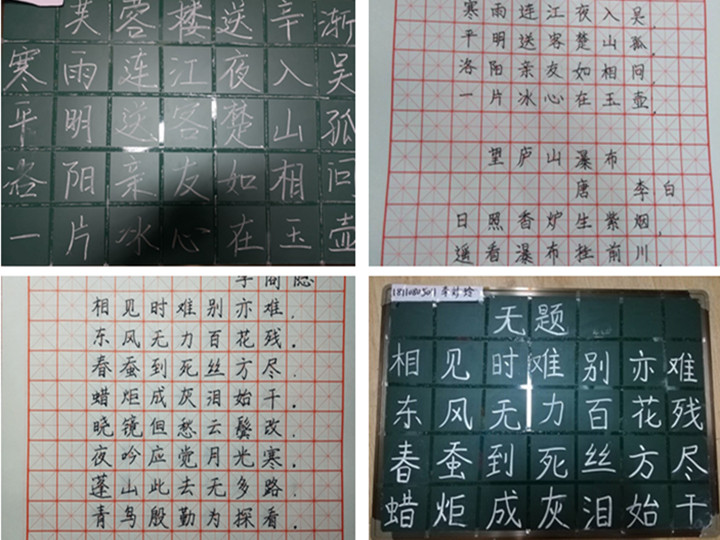 芙蓉楼送辛渐
寒雨连江夜入吴
平明送客楚山孤
洛阳亲友如相问
一片冰心在玉壶
寒雨连江夜入吴.
平明送客楚山孤.
洛阳亲友如相问.
一片冰心在玉壶.
望庐山瀑布
唐 李白
日照香炉生紫烟.
遥看瀑布挂前川.
李商隐
相见时难别亦难.
东风无力百花残.
春蚕到死丝方尽.
蜡炬成灰泪始干.
晓镜但愁云鬓改.
夜吟应觉月光寒.
蓬山此去无多路.
青鸟殷勤为探看.
无题
相见时难别亦难
东风无力百花残
春蚕到死丝方尽
蜡炬成灰泪始干